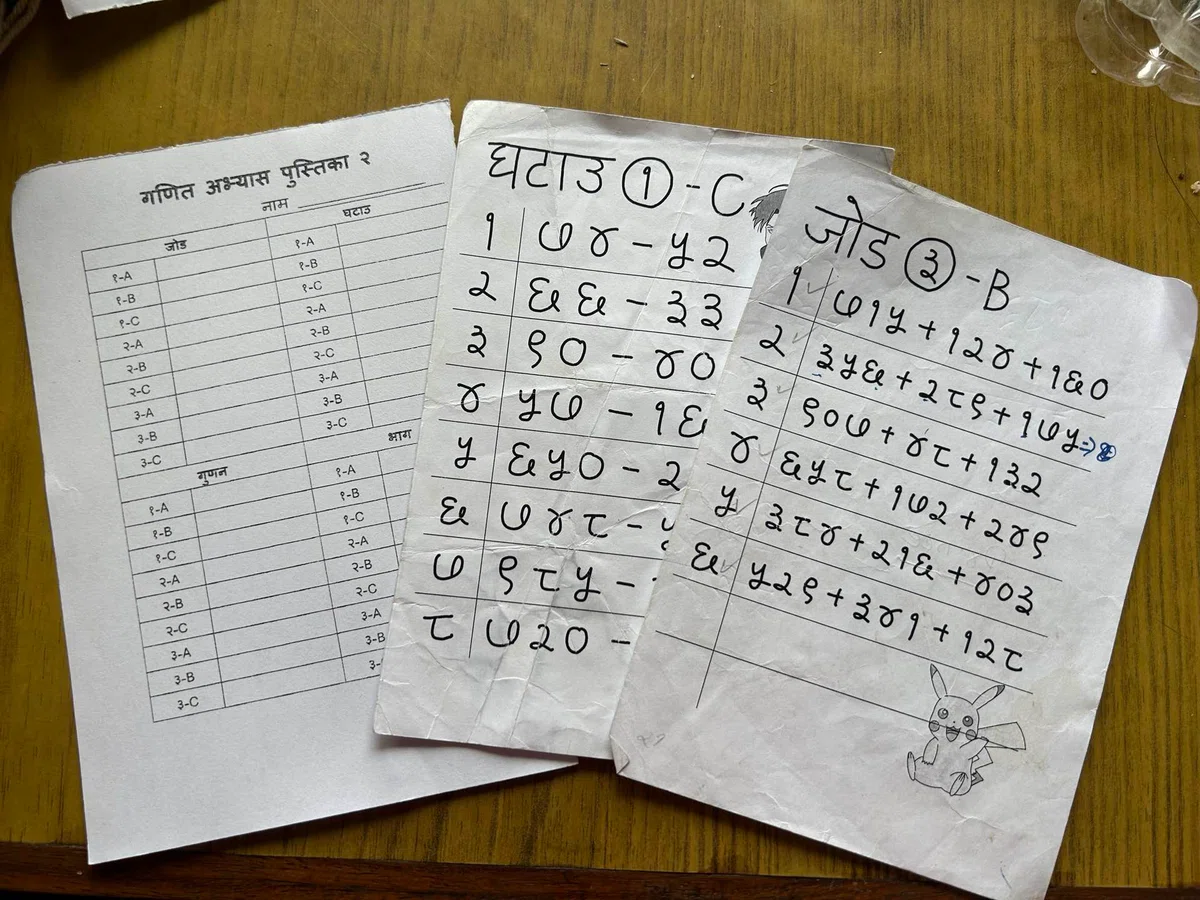 गणित अभ्यास पुस्तिका २
नाम
जोड घटाउ
१-A १-A
१-B १-B
१-C १-C
२-A २-A
२-B २-B
२-C २-C
३-A ३-A
३-B ३-B
३-C ३-C
गुणन भाग
१-A १-A
१-B १-B
१-C १-C
२-A २-A
२-B २-B
२-C २-C
३-A ३-A
३-B ३-B
३-C ३-
घटाउ १ - C
१ ७४ - ५२
२ ६६ - ३३
३ ९० - ४०
४ ५७ - १६
५ ६५० - २
६ ७४८ -
७ ९८५ -
८ ७२० -
जोड ३ - B
१ ७१५ + १२४ + १६०
२ ३५६ + २८९ + १७५ ⇒
३ ९०७ + ४८ + १३२
४ ६५८ + १७२ + २४९
५ ३८४ + २१६ + ४०३
६ ५२९ + ३४१ + १२८